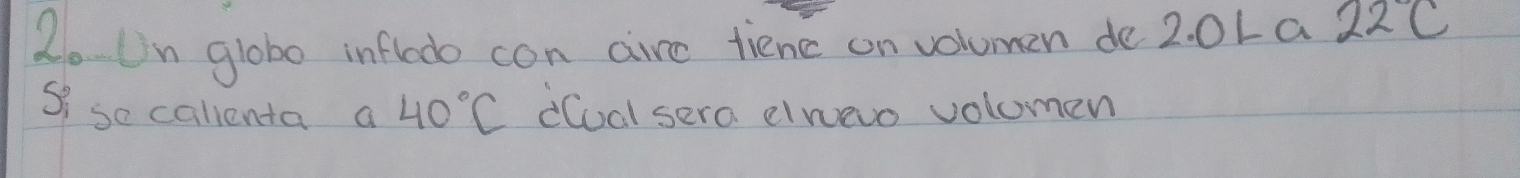 2. Un globo inflado con aire tiene un volumen de 2.0L a 22°C
Si se calienta a 40°C ¿Cual sera el nuevo volumen